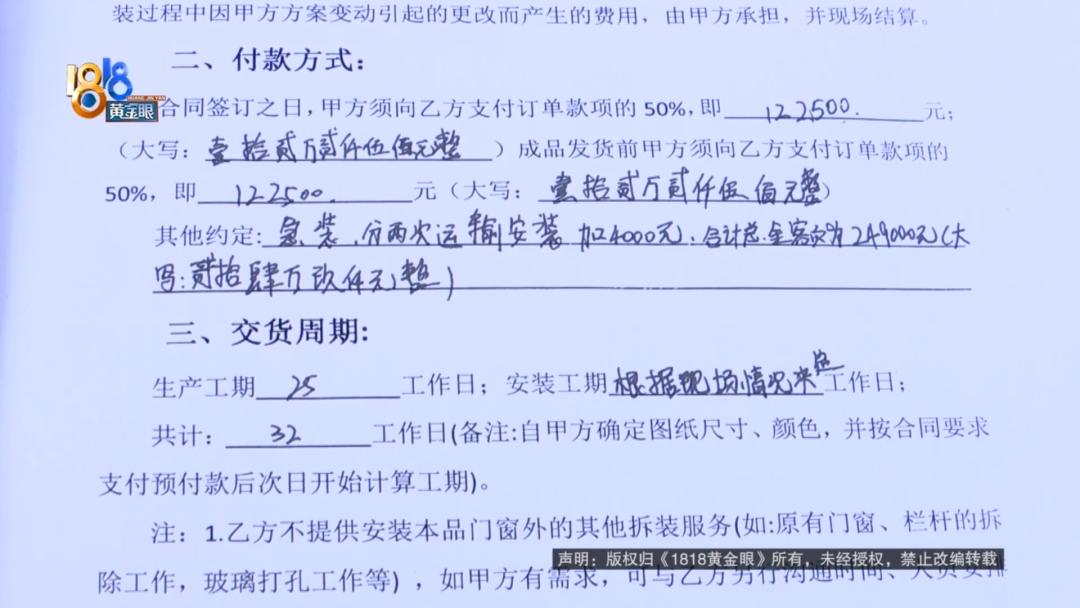 装过程中因甲方方案变动引起的更改而产生的费用，由甲方承担，并现场结算。
二、付款方式：
1818
黄金眼
合同签订之日，甲方须向乙方支付订单款项的 50%，即 122500. 元；
（大写：壹拾贰万贰仟伍佰元整）成品发货前甲方须向乙方支付订单款项的
50%，即 122500. 元（大写：壹拾贰万贰仟伍佰元整）
其他约定: 急装、分两次运输安装 加4000元. 合计总金额为249000元(大
写:贰拾肆万玖仟元整)
三、交货周期:
生产工期 25 工作日；安装工期 根据现场情况来定 工作日；
共计： 32 工作日(备注:自甲方确定图纸尺寸、颜色，并按合同要求
支付预付款后次日开始计算工期)。
注：1.乙方不提供安装本品门窗外的其他拆装服务(如:原有门窗、栏杆的拆
声明：版权归《1818黄金眼》所有，未经授权，禁止改编转载
除工作，玻璃打孔工作等)，如甲方有需求，可与乙方另行沟通时间、人员安排